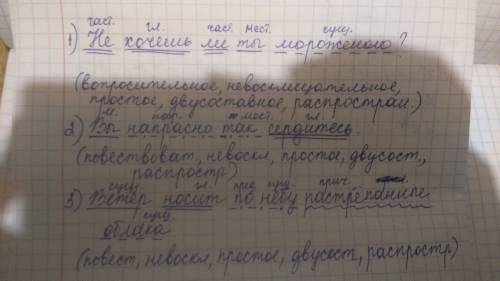 част. гл. част. мест. сущ.
1) Не хочешь ли ты мороженого?
(вопросительное, невосклицательное,
простое, двусоставное, распростран.)
м. нар. мест. гл.
2) Вы напрасно так сердитесь.
(повествоват, невоскл, простое, двусост,
распростр)
сущ. гл. пред сущ. прич.
3) Ветер носит по небу растрёпанные
сущ.
облака
(повест, невоскл, простое, двусост, распростр)